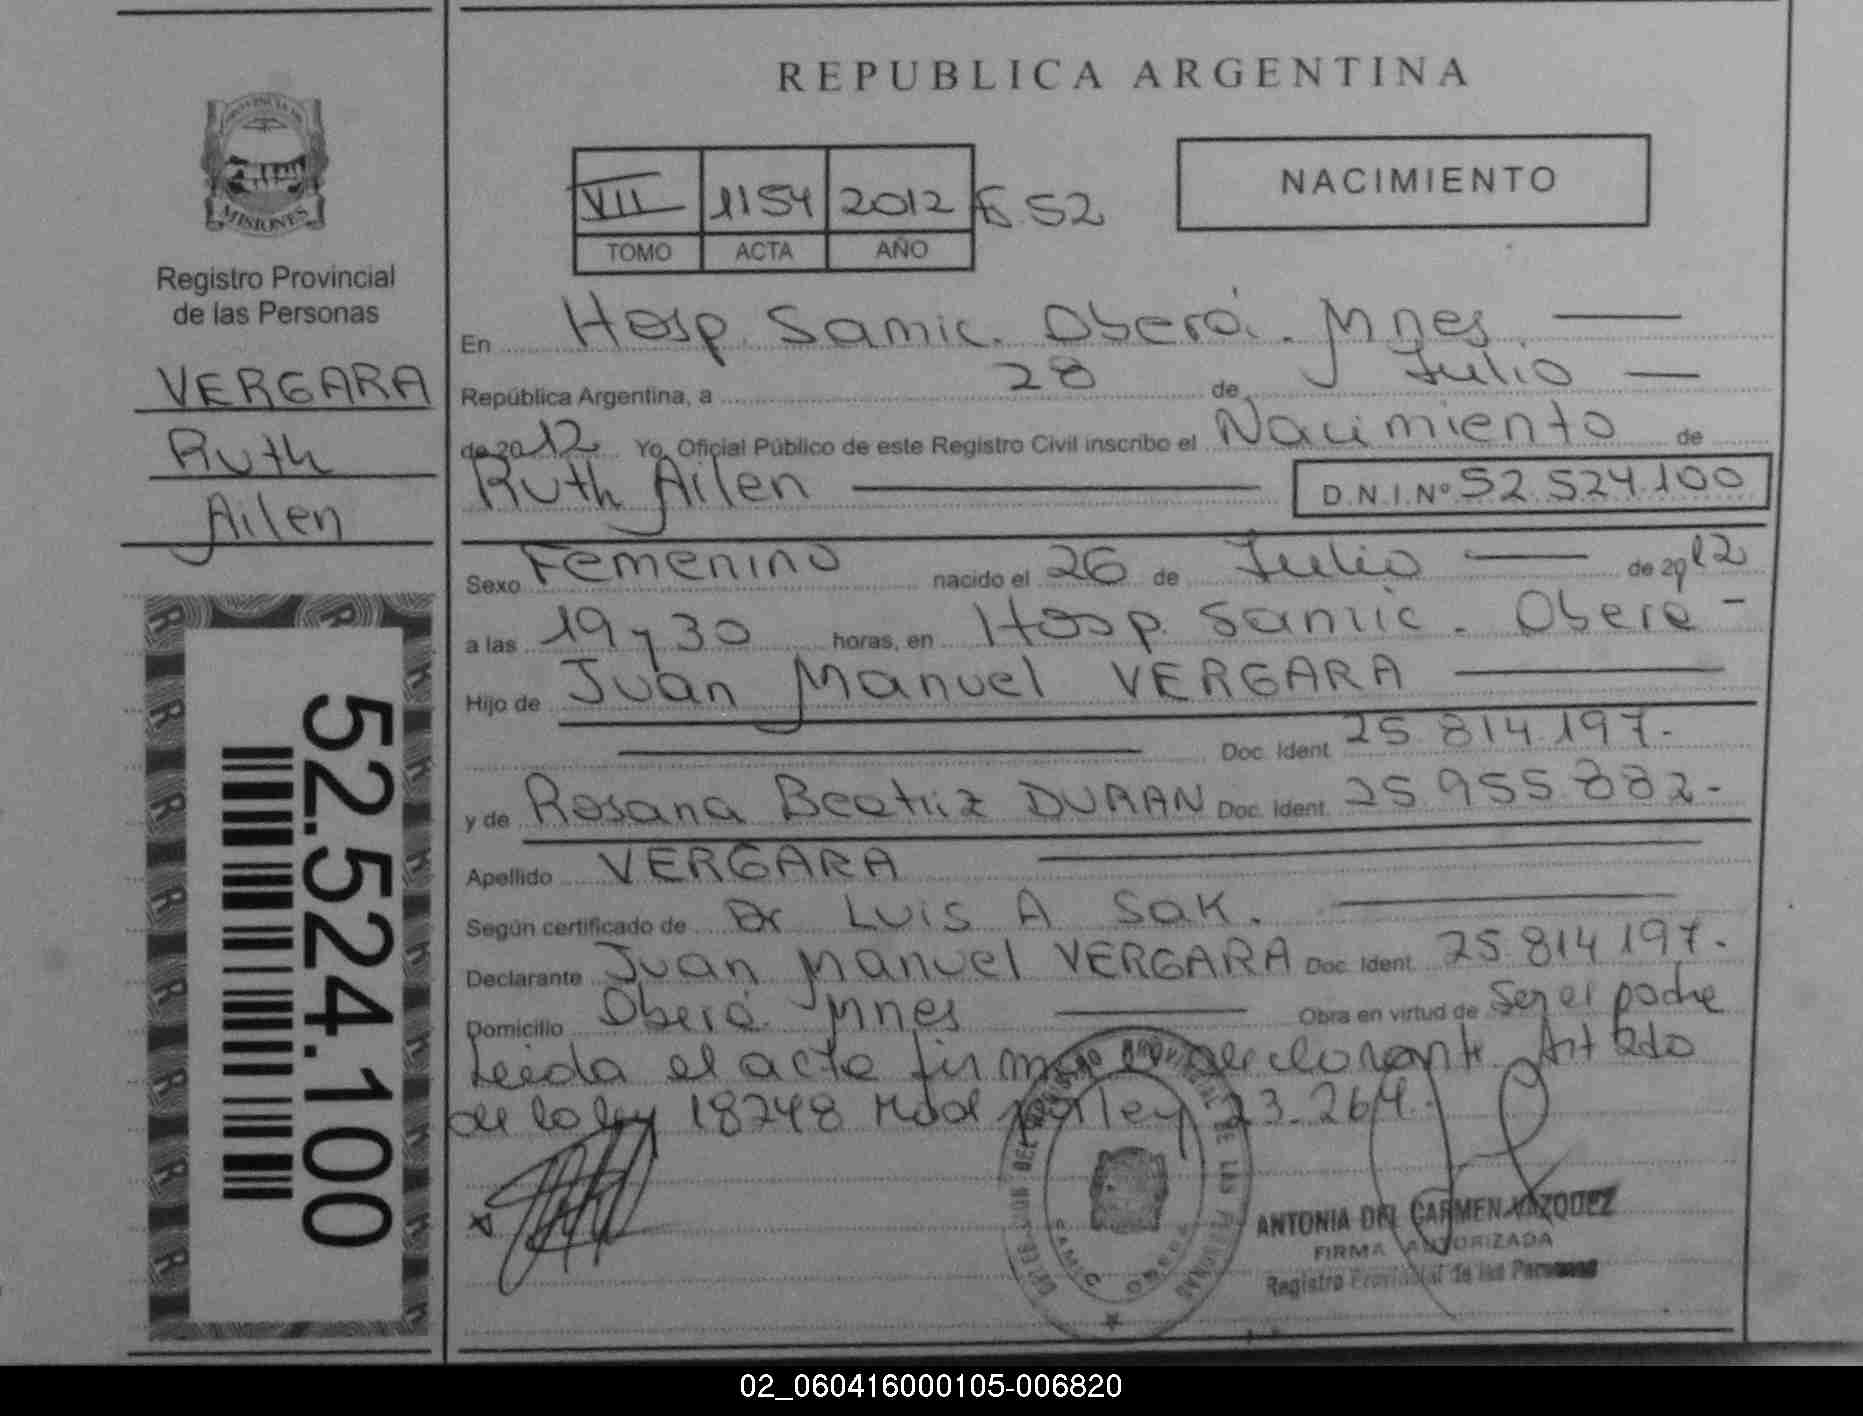 REPUBLICA ARGENTINA
PROVINCIA DE
MISIONES
Registro Provincial
de las Personas
VERGARA
Ruth
Ailen
52.524.100
VII 1154 2012 F. 52
TOMO ACTA AÑO
NACIMIENTO
En Hosp. Samic. Oberá. Mnes
República Argentina, a 28 de Julio
de 2012 Yo, Oficial Público de este Registro Civil inscribo el Nacimiento de
Ruth Ailen D.N.I.Nº 52.524.100
Sexo Femenino nacido el 26 de Julio de 2012
a las 19 y 30 horas, en Hosp. Samic. Oberá
Hijo de Juan Manuel VERGARA
Doc. Ident. 25.814.197.-
y de Rosana Beatriz DURAN Doc. Ident. 25.955.882.-
Apellido VERGARA
Según certificado de Dr Luis A Sak.
Declarante Juan Manuel VERGARA Doc. Ident. 25.814.197.-
Domicilio Oberá Mnes Obra en virtud de Ser el padre
Leida el acta firma el declarante Art 2do
de la ley 18248 Mod por ley 23.264.
DEL REGISTRO PROVINCIAL DE LAS PERSONAS
ANTONIA DEL CARMEN VAZQUEZ
FIRMA AUTORIZADA
Registro Provincial de las Personas
02_060416000105-006820